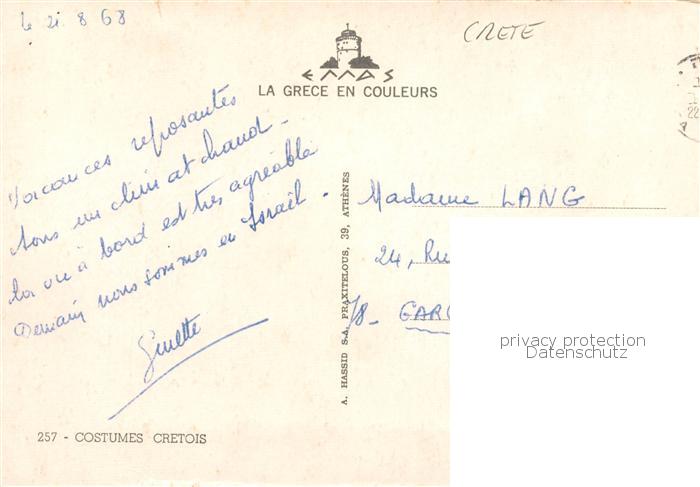 le 21 8 68
CRETE
ΕΛΛΑΣ
LA GRECE EN COULEURS
22
Vacances reposantes
sous un climat chaud -
la vie à bord est très agréable
Demain nous sommes en Israël.
Ginette
A. HASSID S.A. PRAXITELOUS, 39, ATHÈNES
Madame LANG
24, Ru
78- GARC
privacy protection
Datenschutz
257 - COSTUMES CRETOIS